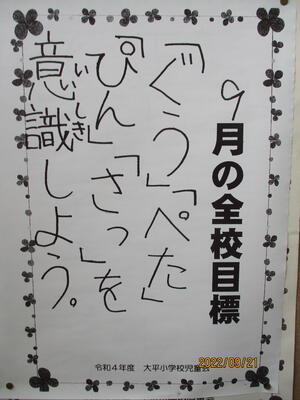 9月の全校目標
「ぐう」「ぺた」
「ぴん」「さっ」を
意識しよう。
いしき
令和4年度 大平小学校児童会
2022/09/21